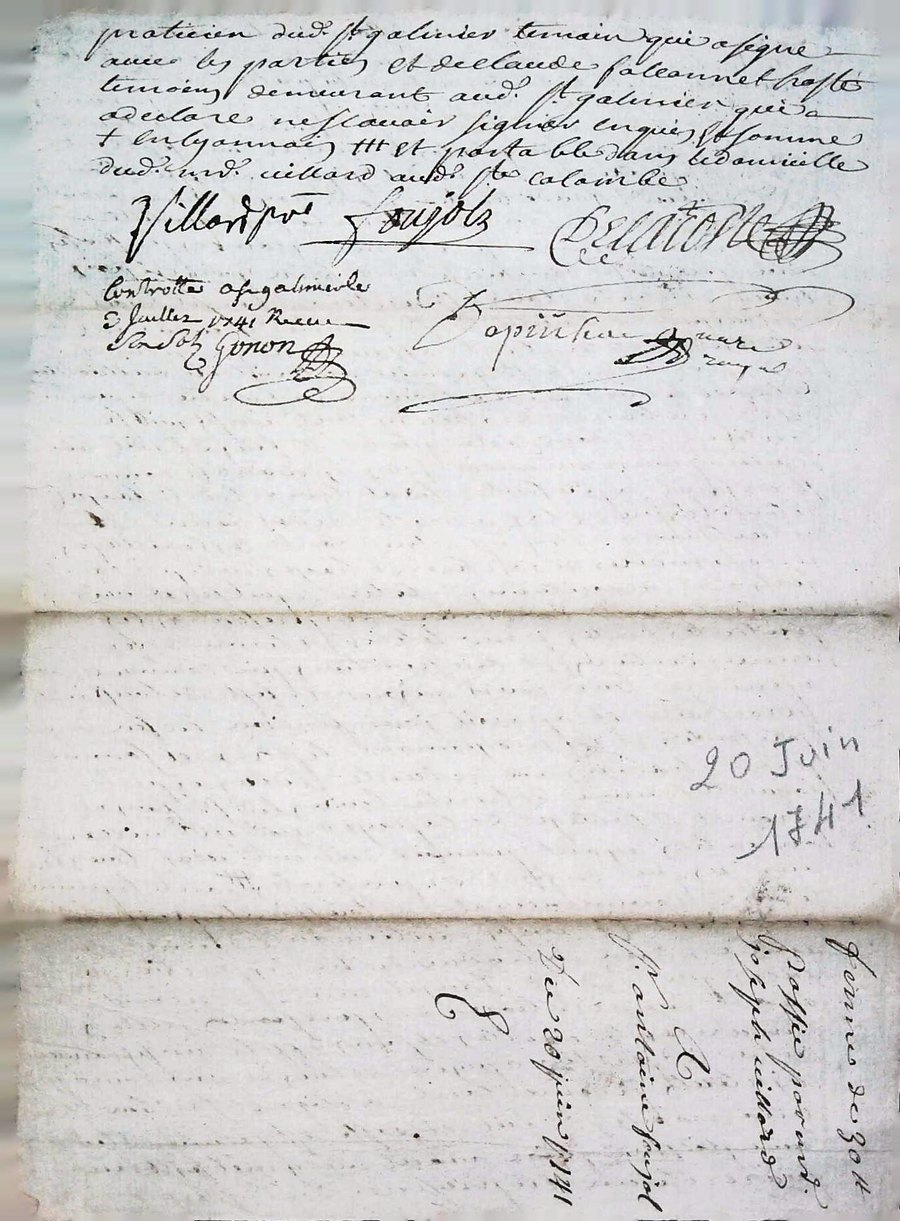 praticien dud. st galmier temoin qui a signe
avec les parties et de claude faleonnet hoste
temoins demeurant aud. st galmier qui a
declare ne scavoir signer enquis et somme
+ en lyonnois ttt et portable dans le domicille
dud. md. villard aud. ste colombe
Villard pre foujols Delacoste
Controlle a st galmier le
3 Juillet 1741 Receu
Six Sols Gonon
20 Juin
1741
ferme de 30 tt
Passée par md.
Joseph villard
A
St antoine foujol
Du 20 juin 1741